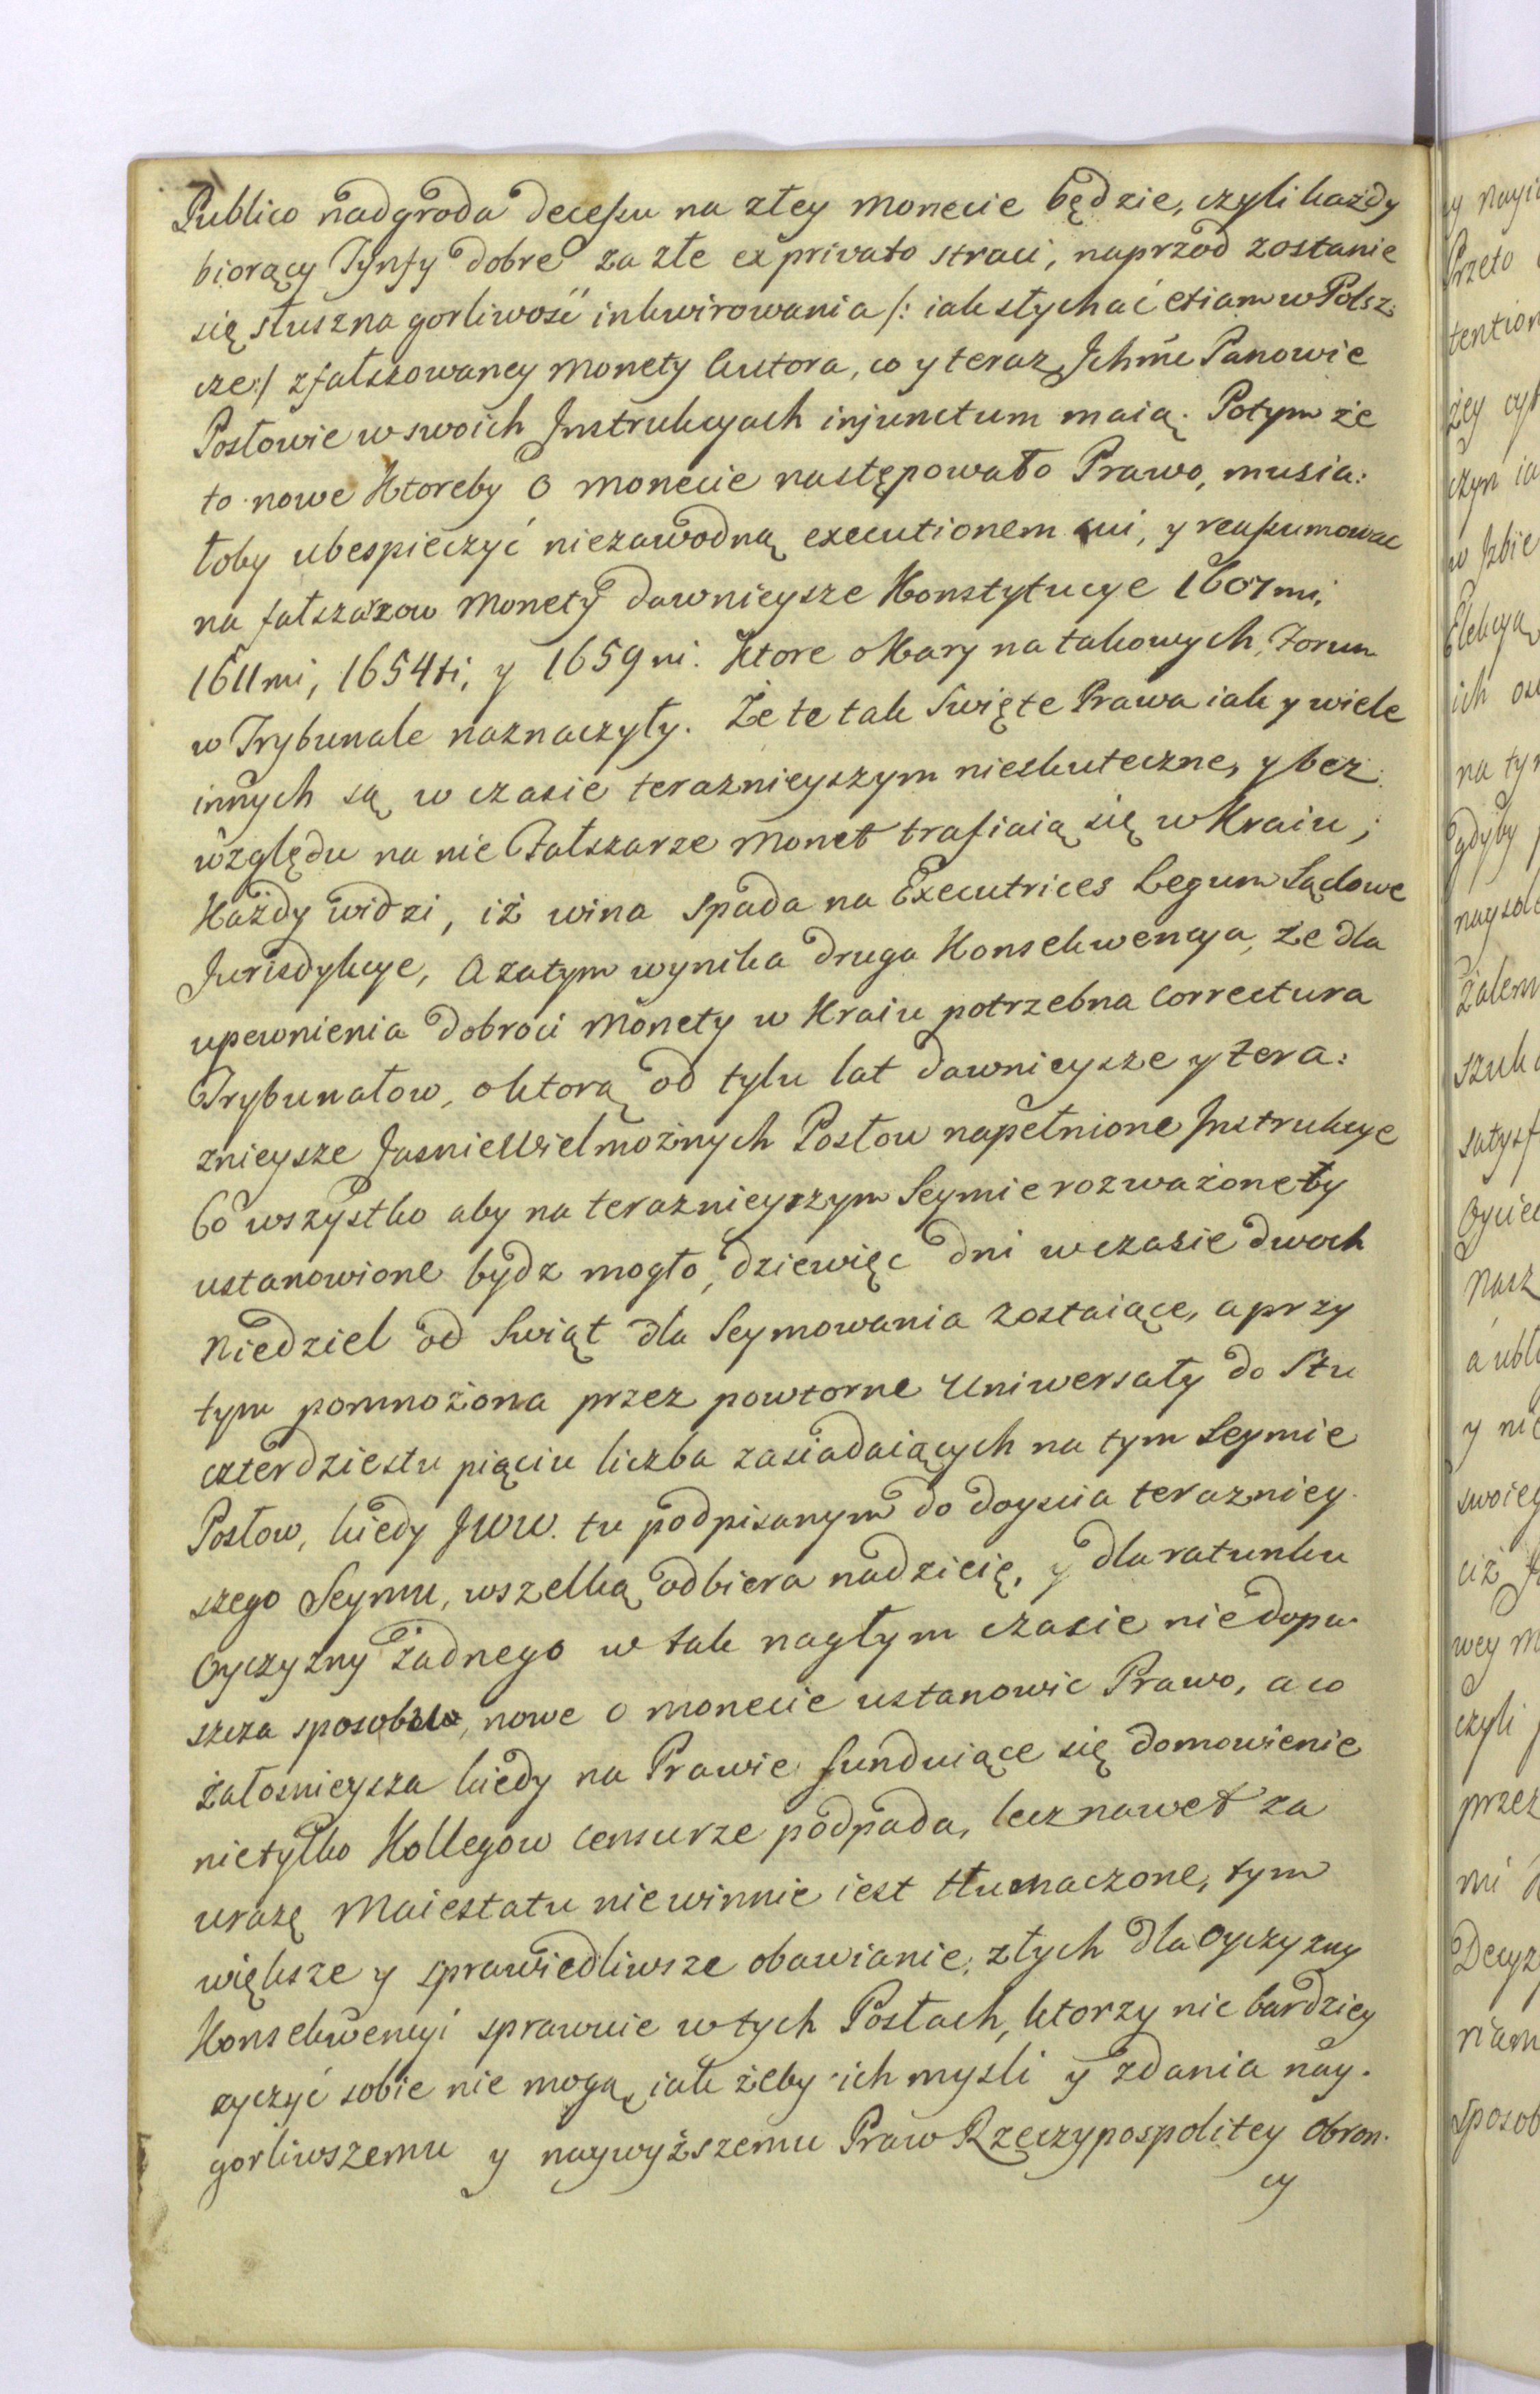 Publico nadgroda decessu na złey monecie będzie, czyli każdy
biorący Tynfy dobre za złe ex privato straci, naprzod zostanie
się słuszna gorliwość inkwirowania /: iak słychać etiam w Polsz:
cze :/ zfałszowaney monety Autora, co y teraz Ichmć Panowie
Posłowie w swoich Instrukcyach injunctum maią. Potym że
to nowe ktoreby o monecie następowało Prawo, musia:
łoby ubespieczyć niezawodną executionem sui, y reassumować
na fałszarzow monety dawnieysze Konstytucye 1607mi,
1611mi, 1654ti, y 1659ni. Ktore o Kary na takowych, Forum
w Trybunale naznaczyły. Że te tak Swięte Prawa iak y wiele
innych są w czasie teraznieyszym nieskuteczne, y bez
względu na nie Fałszarze monet trafiaią się w Kraiu;
Każdy widzi, iż wina spada na Executrices Legum Sądowe
Jurisdykcye, a zatym wynika druga Konsekwencya, że dla
upewnienia dobroci monety w Kraiu potrzebna correctura
Trybunałow, o ktorą od tylu lat dawnieysze y tera:
znieysze Jasnie Wielmożnych Posłow napełnione Instrukcye
Co wszystko aby na teraznieyszym Seymie rozważone by
ustanowione bydz mogło, dziewięc dni w czasie dwoch
niedziel od Swiąt dla Seymowania zostaiące, a przy
tym pomnożona przez powtorne Uniwersały do Stu
czterdziestu pięciu liczba zasiadaiących na tym Seymie
Posłow, kiedy JWW. tu podpisanym do doyscia terazniey
szego Seymu, wszelką odbiera nadzieię, y dla ratunku
Oyczyzny żadnego w tak nagłym czasie niedopu
szcza sposobu, nowe o monecie ustanowic Prawo, a co
żałosnieysza kiedy na Prawie funduiące się domowienie
nietylko Kollegow censurze podpada, lecz nawet za
urazę Maiestatu niewinnie iest tłumaczone, tym
większe y sprawiedliwsze obawianie, złych dla Oyczyzny
Konsekwencyi sprawuie w tych Posłach, ktorzy nic bardziey
zyczyć sobie nie mogą, iak żeby ich mysli y zdania nay.
gorliwszemu y naywyższemu Praw Rzeczypospolitey Obron.
cy